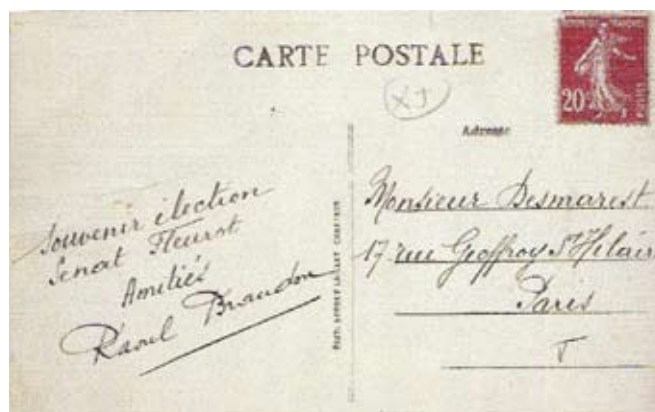 CARTE POSTALE
RÉPUBLIQUE FRANÇAISE
20
POSTES
XJ
Adresse
Souvenir élection
Senat Fleurot
Amitiés
Raoul Brandon
Monsieur Desmarest
17 rue Geoffroy St Hilaire
Paris